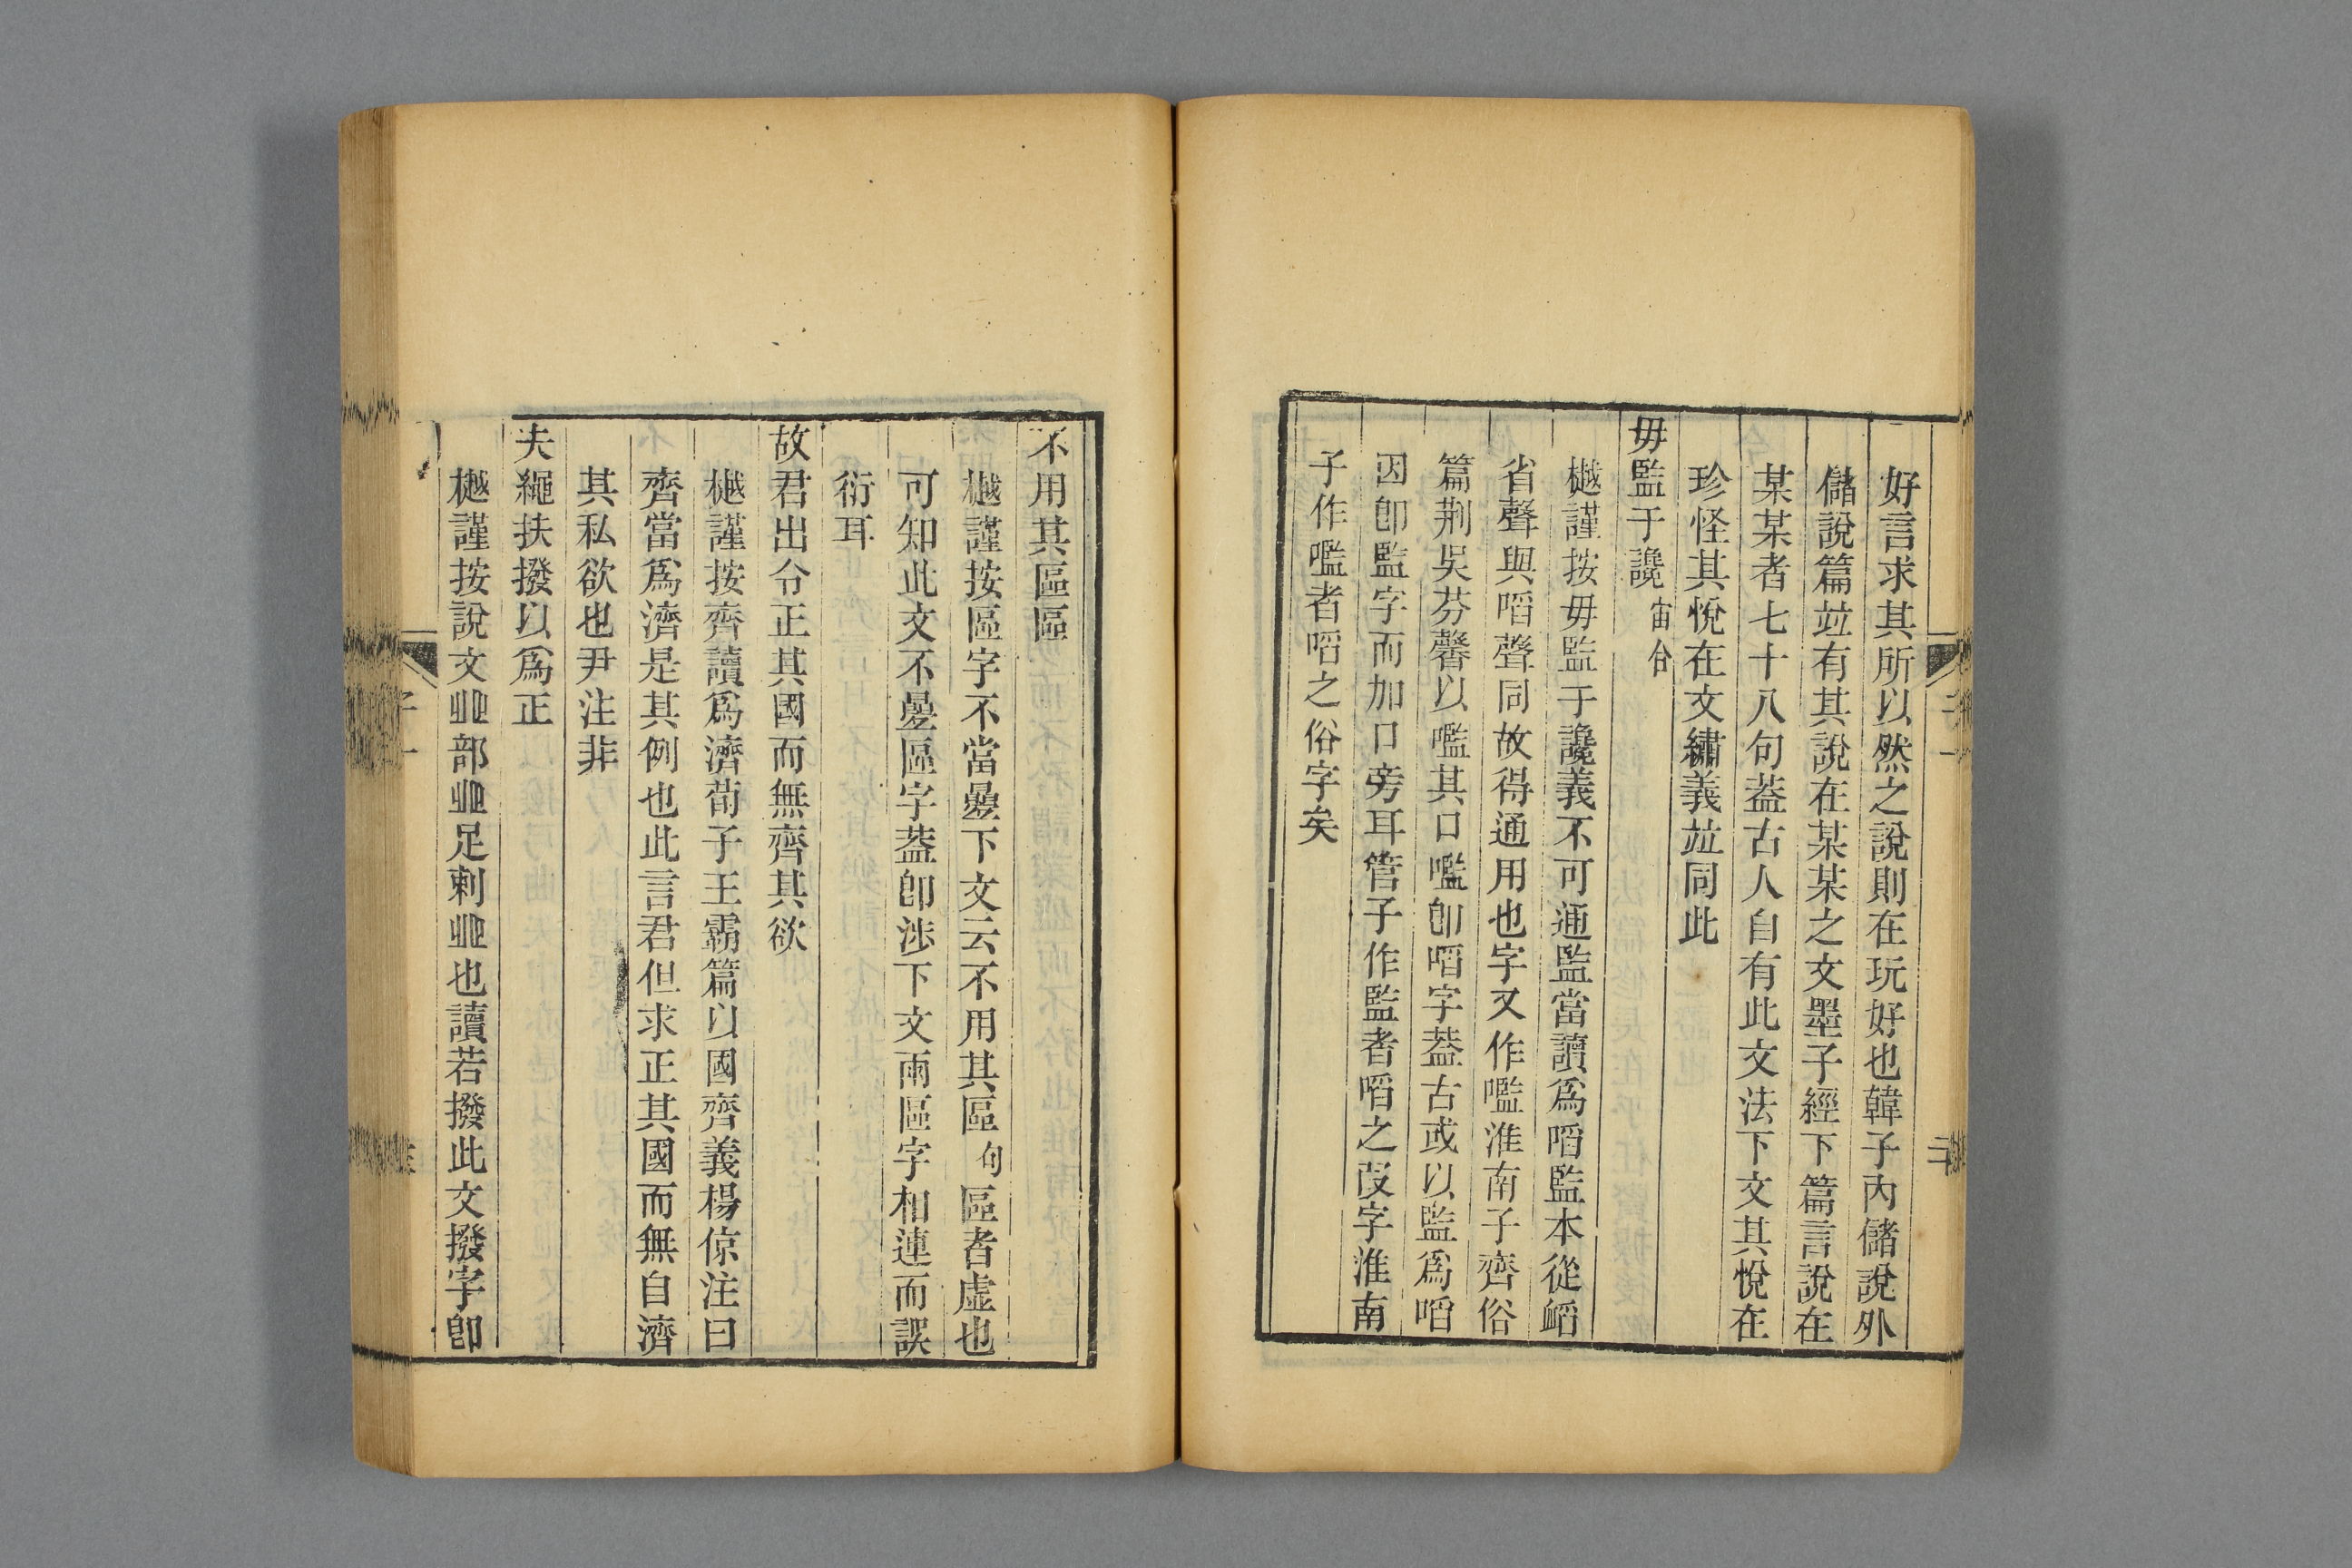 好言求其所以然之說則在玩好也韓子內儲說外
儲說篇竝有其說在某某之文墨子經下篇言說在
某某者七十八句葢古人自有此文法下文其悅在
珍怪其悅在文繡義竝同此
毋監于讒宙合
樾謹按毋監于讒義不可通監當讀爲啗監本從䘓
省聲與啗聲同故得通用也字又作㘕淮南子齊俗
篇荆吳芬馨以㘕其口㘕卽啗字葢古或以監爲啗
因卽監字而加口旁耳管子作監者啗之叚字淮南
子作㘕者啗之俗字矣
不用其區區
樾謹按區字不當曡下文云不用其區句區者虛也
可知此文不曡區字葢卽涉下文兩區字相連而誤
衍耳
故君出令正其國而無齊其欲
樾謹按齊讀爲濟荀子王霸篇以國齊義楊倞注曰
齊當爲濟是其例也此言君但求正其國而無自濟
其私欲也尹注非
夫繩扶撥以爲正
樾謹按說文癶部癶足剌癶也讀若撥此文撥字卽